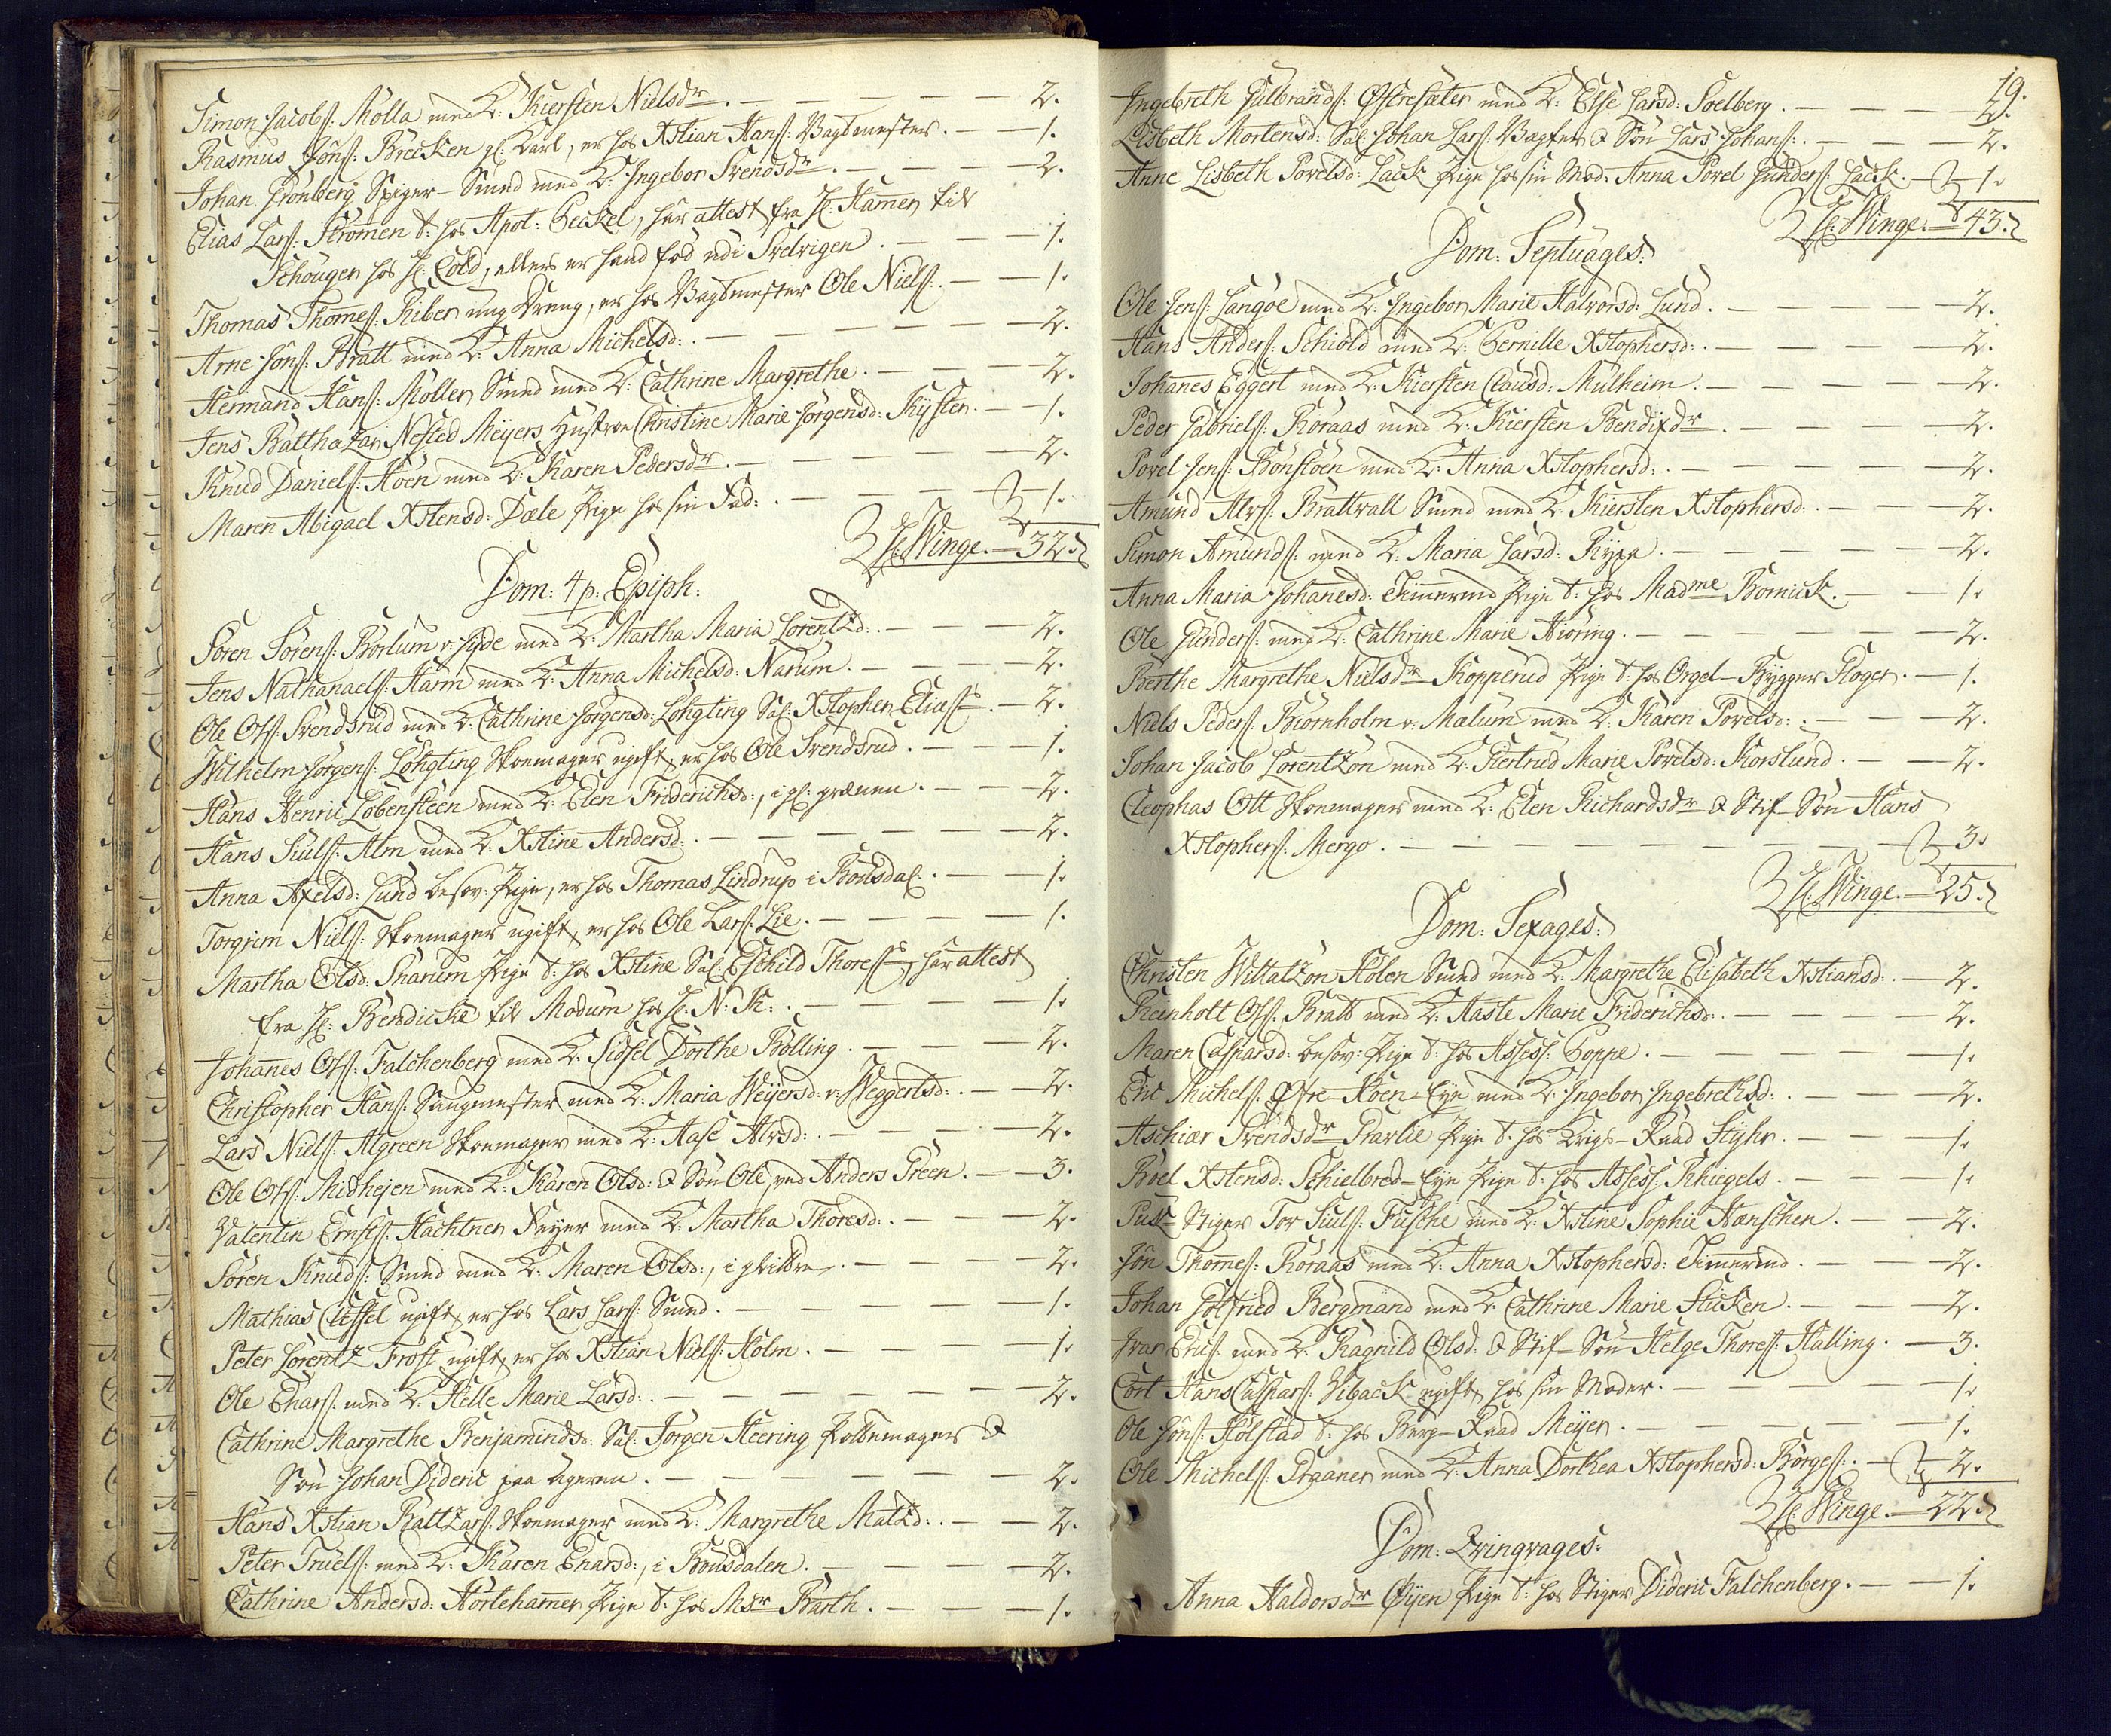 Simon Jacobs: Mölla med K: Kiersten Nielsdr. — 2.
Rasmus Jöns: Brecken gl: Karl, er hos Xstian Hans: Vagtmester. — 1.
Johan Grönberg Spiger-Smed med K: Ingebor Svendsdr. — 2.
Elias Lars: Strömen t: hos Apot: Heckel, har attest fra H: Hamer til
Schougen hos H: Cold, ellers er hand fød udi Svelvigen. — 1.
Thomas Thomes: Riber ung Dreng, er hos Vagtmester Ole Niels: — 1.
Arne Jöns: Bratt med K: Anna Michelsd: — 2.
Hermand Hans: Möller Smed med K: Cathrine Margrethe. — 2.
Jens Balthazar Nested Meyers Hustroe Christine Marie Jörgensd: Kyster. — 1.
Knud Daniels: Hoen med K: Karen Pedersdr. — 2.
Maren Abigael Xstensd: Dæle Pige hos sin Fad: — 1.
H: Winge. — 32.
Dom: 4 p: Epiph:
Sören Sörens: Borlum v: Hyde med K: Martha Maria Lorentzd: — 2.
Jens Nathanaels: Harm med K: Anna Michelsd: Narum. — 2.
Ole Ols: Svendsrud med K: Cathrine Jörgensd: Löhgting Sal: Xstopher Elias: — 2.
Wilhelm Jörgens: Löhgting Skoemager ugift, er hos Ole Svendsrud. — 1.
Hans Henric Löbensteen med K: Elen Friderichsd:, i gl: — 2.
Hans Siuls: Alm med K: Xstine Andersd: — 2.
Anna Axelsd: Lund besov: Pige, er hos Thomas Lindrup i Bousdal: — 1.
Torgrim Niels: Skoemager ugift, er hos Ole Lars: Lie. — 1.
Martha Olsd: Skarum Pige t: hos Xstine Sal: Eschild Thores:, har attest
fra H: Bendicke til Modum hos H: N: K: — 1.
Johannes Ols: Falchenberg med K: Sidsel Dorthe Bölling. — 2.
Christopher Hans: Saugmester med K: Maria Weyersd: v: Weggertsd: — 2.
Lars Niels: Algreen Skoemager med K: Aase Alvsd: — 2.
Ole Ols: Midhejen med K: Karen Olsd: & Søn Ole, ved Anders Preen. — 3.
Valentin Ernsts: Hachtner Feyer med K: Martha Thoresd: — 2.
Sören Knuds: Smed med K: Maren Olsd:, i — 2.
Mathias Clessel ugift, er hos Lars Lars: Smed. — 1.
Peter Lorentz Frost ugift, er hos Xstian Niels: Holm. — 1.
Ole Enars: med K: Helle Marie Larsd: — 2.
Cathrine Margrethe Benjaminsd: Sal: Jörgen Heering Poldemager &
Søn Johan Dideric paa Ageren. — 2.
Hans Xstian Baltzars: Skoemager med K: Margrethe Matzd: — 2.
Peter Truels: med K: Karen Enarsd:, i Bousdalen. — 2.
Cathrine Andersd: Hörtehamer Pige t: hos Msr Barth. — 1.
19.
Ingebreth Gulbrands: Østresæter med K: Else Larsd: Soelberg. — 2.
Lisbeth Mortensd: Sal: Johan Lars: Vagters & Søn Lars Johans: — 2.
Anne Lisbeth Povelsd: Lack Pige hos sin Mod: Anna Povel Gunders: Lack. — 1.
H: Winge. — 43.
Dom: Septuages:
Ole Jens: Langöe med K: Ingebor Marie Halvorsd: Lund. — 2.
Hans Anders: Schiold med K: Pernille Xstophersd: — 2.
Johannes Eggert med K: Kiersten Clausd: Mulheim. — 2.
Peder Gabriels: Roraas med K: Kiersten Bendixdr. — 2.
Povel Jens: Bonstöen med K: Anna Xstophersd: — 2.
Amund Alvs: Brattvall Smed med K: Kiersten Xstophersd: — 2.
Simon Amunds: med K: Maria Larsd: Rypa. — 2.
Anna Maria Johanesd: Timermd Pige t: hos Madme Bornick. — 1.
Ole Gunders: med K: Cathrine Marie Hiöring. — 2.
Berthe Margrethe Nielsdr Kopperud Pige t: hos Orgel-Bygger Ploger. — 1.
Niels Peders: Biörnholm v: Mælum med K: Karen Povelsd: — 2.
Johan Jacob Lorentzon med K: Giertrud Marie Povelsd: Korslund. — 2.
Cleophas Ott Skoemager med K: Elen Richardsdr & Stif-Søn Hans
Xstophers: Mergo. — 3.
H: Winge. — 25.
Dom: Sexages:
Christen Wittatzon Holen Smed med K: Margrethe Elisabeth Xstiansd: — 2.
Reinholt Ols: Bratt med K: Aaste Marie Friderichsd: — 2.
Maren Caspersd: besov: Pige t: hos Assess: Poppe. — 1.
Eric Michels: Øfre-Hoen-Eye med K: Ingebor Ingebrethsd: — 2.
Aschier Svendsdr Gravlie Pige t: hos Krigs-Raad Styhr. — 1.
Boel Xstensd: Schielbred-Eye Pige t: hos Assess: Rhiegels. — 1.
Puk-Stiger Tor Siuls: Fusche med K: Xstine Sophie Hænschen. — 2.
Jön Thomes: Roraas med K: Anna Xstophersd: Timermd. — 2.
Johan Gotfried Bergmand med K: Cathrine Marie Stucken. — 2.
Ivar Erics: med K: Ragnild Olsd: & Stif-Søn Helge Thores: Halling. — 3.
Cort Hans Caspars: Viback ugift, hos sin Moder. — 1.
Ole Jöns: Holstad t: hos Berg-Raad Meyer. — 1.
Ole Michels: Praaner med K: Anna Dorthea Xstophersd: Börges: — 2.
H: Winge. — 22.
Dom: Qvinqvages:
Anna Haldorsdr Øyen Pige t: hos Stiger Dideric Falchenberg. — 1.